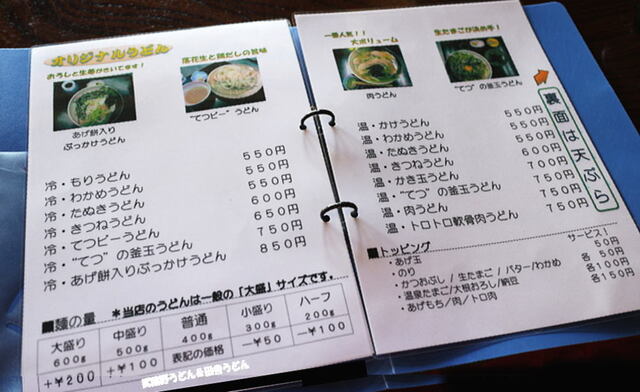 オリジナルうどん
おろしと生姜がきいてます！
落花生と鶏だしの旨味
あげ餅入り
ぶっかけうどん
"てつピー"うどん
冷・もりうどん 550円
冷・わかめうどん 550円
冷・たぬきうどん 550円
冷・きつねうどん 600円
冷・てつピーうどん 650円
冷・"てつ"の釜玉うどん 750円
冷・あげ餅入りぶっかけうどん 850円
■麺の量 *当店のうどんは一般の「大盛」サイズです.
大盛り 中盛り 普通 小盛り ハーフ
600g 500g 400g 300g 200g
+¥200 +¥100 表記の価格 −¥50 −¥100
武蔵野うどん&田舎うどん
一番人気！！
大ボリューム
生たまごが決め手！
肉うどん
"てつ"の釜玉うどん
温・かけうどん 550円
温・わかめうどん 550円
温・たぬきうどん 550円
温・きつねうどん 600円
温・かき玉うどん 700円
温・"てつ"の釜玉うどん 750円
温・肉うどん 750円
温・トロトロ軟骨肉うどん 750円
裏面は天ぷら
■トッピング
・あげ玉 サービス！
・のり 50円
・かつおぶし / 生たまご / バター/わかめ 各50円
・温泉たまご/大根おろし/納豆 各100円
・あげもち/肉/トロ肉 各150円